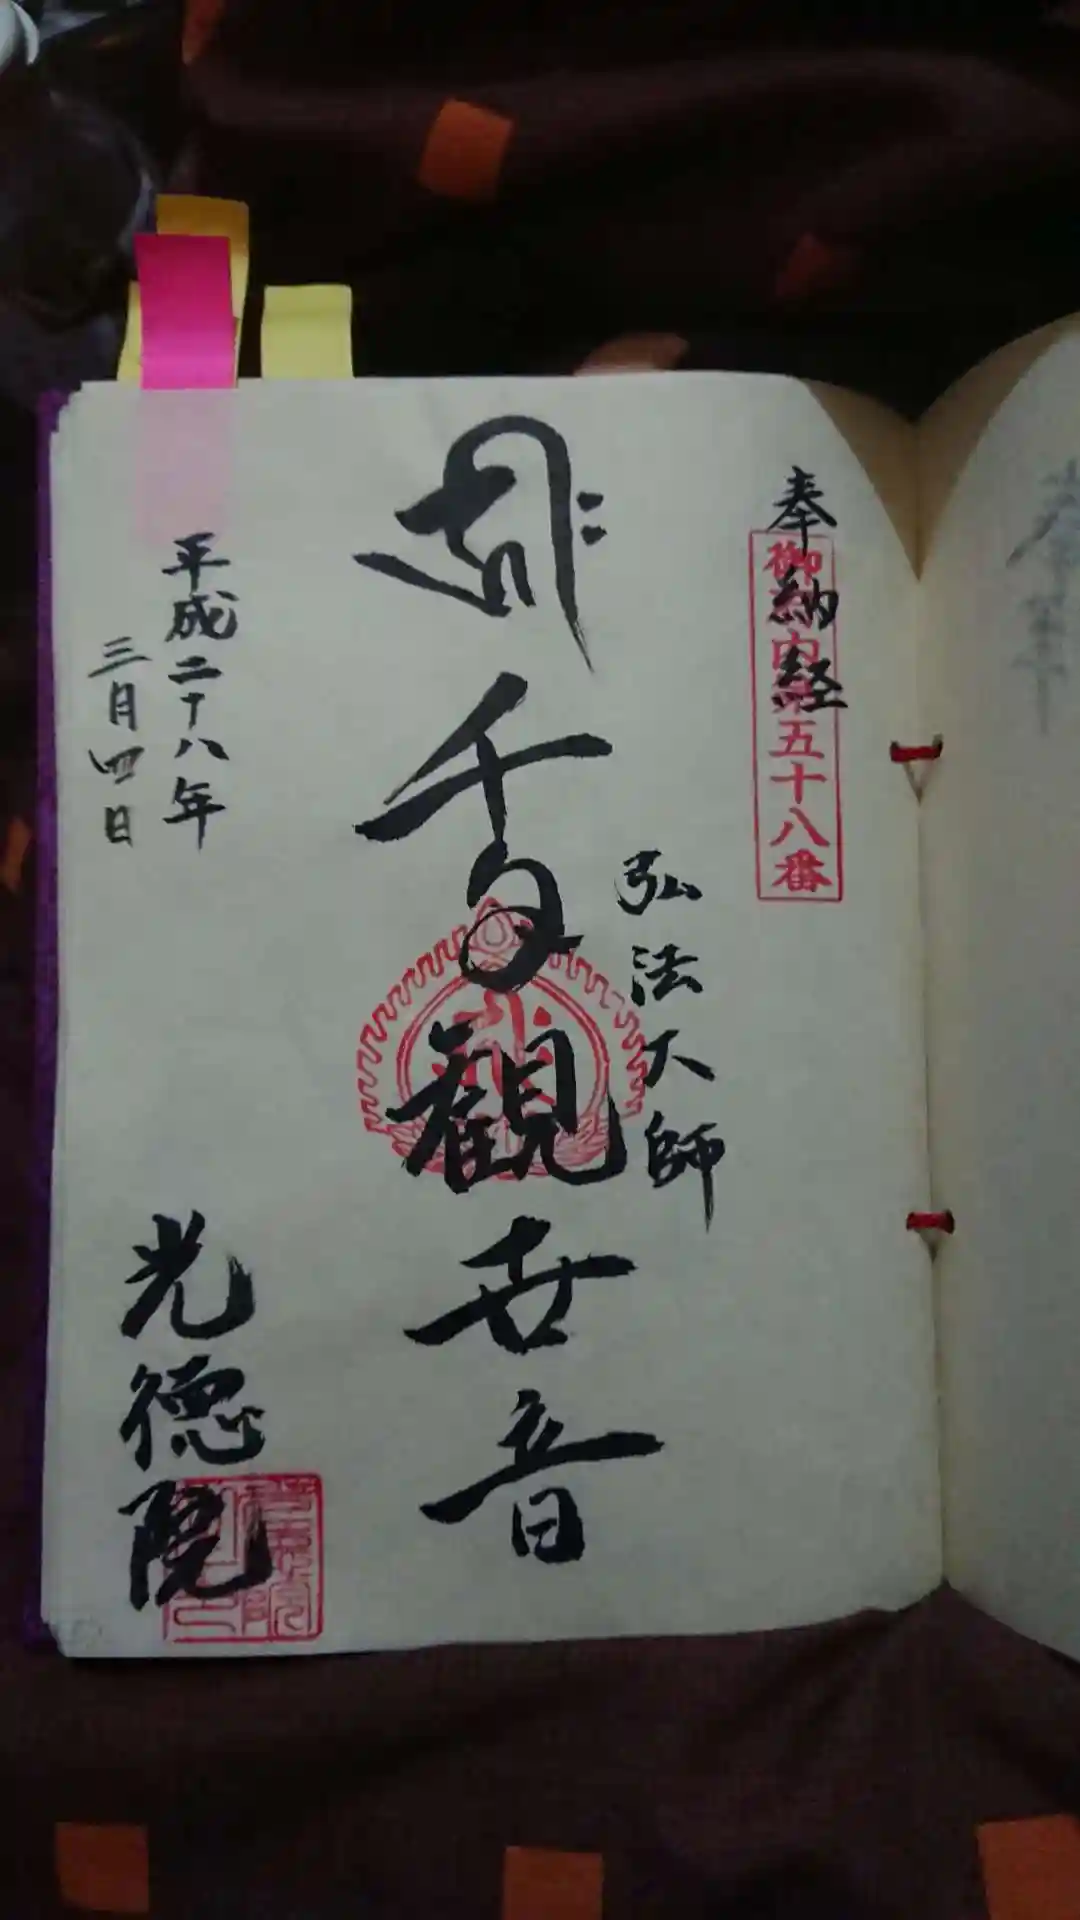 奉納経
五十八番
弘法大師
千手観世音
平成二十八年
三月四日
光徳院